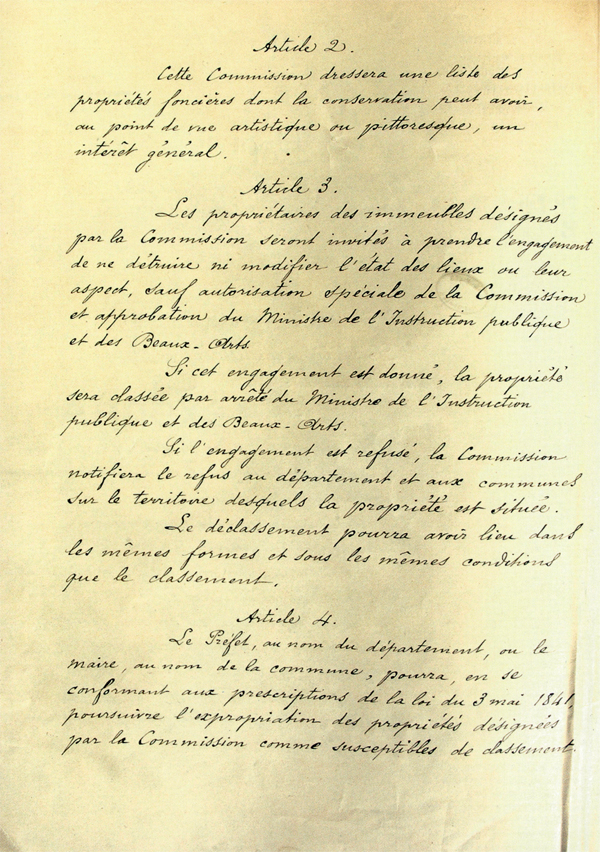 Article 2.
Cette Commission dressera une liste des
propriétés foncières dont la conservation peut avoir,
au point de vue artistique ou pittoresque, un
intérêt général.
Article 3.
Les propriétaires des immeubles désignés
par la Commission seront invités à prendre l'engagement
de ne détruire ni modifier l'état des lieux ou leur
aspect, sauf autorisation spéciale de la Commission
et approbation du Ministre de l'Instruction publique
et des Beaux-Arts.
Si cet engagement est donné, la propriété
sera classée par arrêté du Ministre de l'Instruction
publique et des Beaux-Arts.
Si l'engagement est refusé, la Commission
notifiera le refus au département et aux communes
sur le territoire desquels la propriété est située.
Le déclassement pourra avoir lieu dans
les mêmes formes et sous les mêmes conditions
que le classement.
Article 4.
Le Préfet, au nom du département, ou le
maire, au nom de la commune, pourra, en se
conformant aux prescriptions de la loi du 3 mai 1841,
poursuivre l'expropriation des propriétés désignées
par la Commission comme susceptibles de classement.